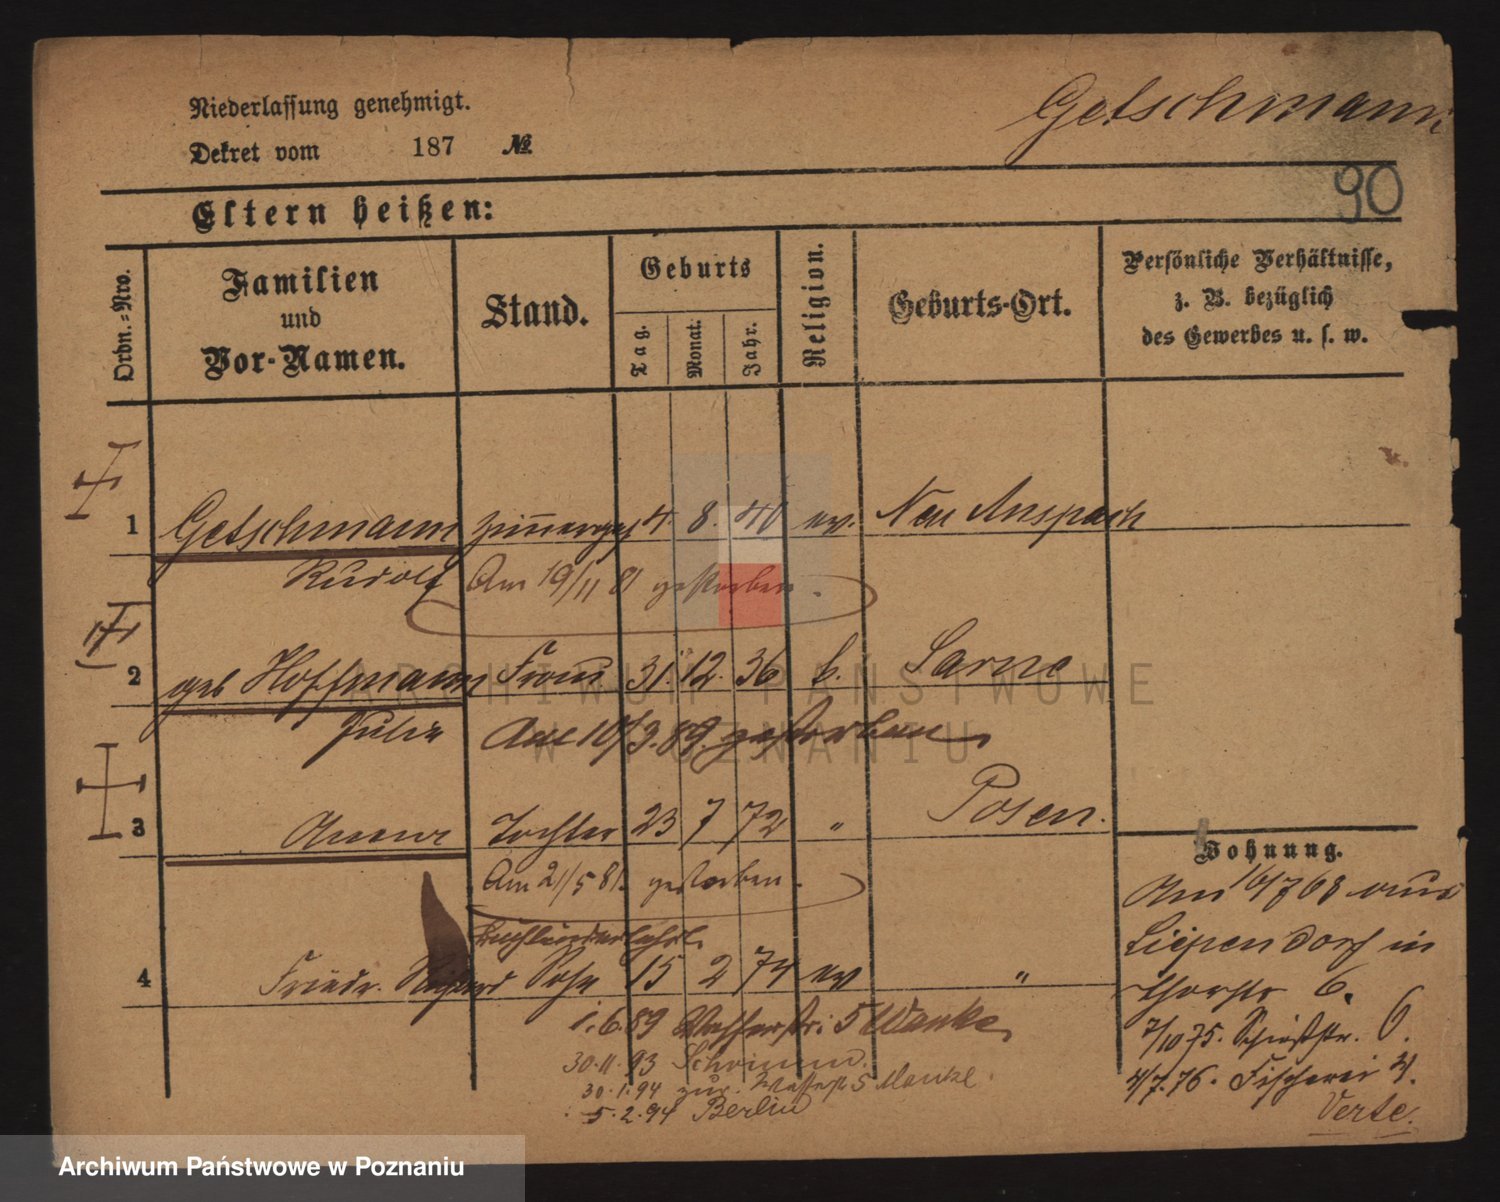 Getschmann
Niederlassung genehmigt.
Dekret vom 187 №
90
Eltern heißen:
Ordn.-Nro.
Familien
und
Vor-Namen.
Stand.
Geburts
Tag.
Monat.
Jahr.
Religion.
Geburts-Ort.
Persönliche Verhältnisse,
z. B. bezüglich
des Gewerbes u. s. w.
1 Getschmann 4. 8. 40 ev. Neu Anspach
Rudolf Am 19/11 81 gestorben.
2 geb Hoffmann Frau 31. 12. 36 k. Sarne
Julie Am 10/3. 89. gestorben
3 Anna Tochter 23 7 72 " Posen.
Am 21/5 81. gestorben.
4 Friedr. Sohn 15 2 74 ev "
1. 6. 89 Wasserstr: 5 Wanke
30. 11. 93 Schrimm.
30. 1. 94 zur. Wasserst 5 Manke.
5. 2. 94 Berlin
Wohnung.
Am 768 aus
in
Thorstr 6.
7/10 75. Schießstr. 6.
4/7. 76. Fischerei 4.
Verte.
ARCHIWUM PAŃSTWOWE
W POZNANIU
Archiwum Państwowe w Poznaniu